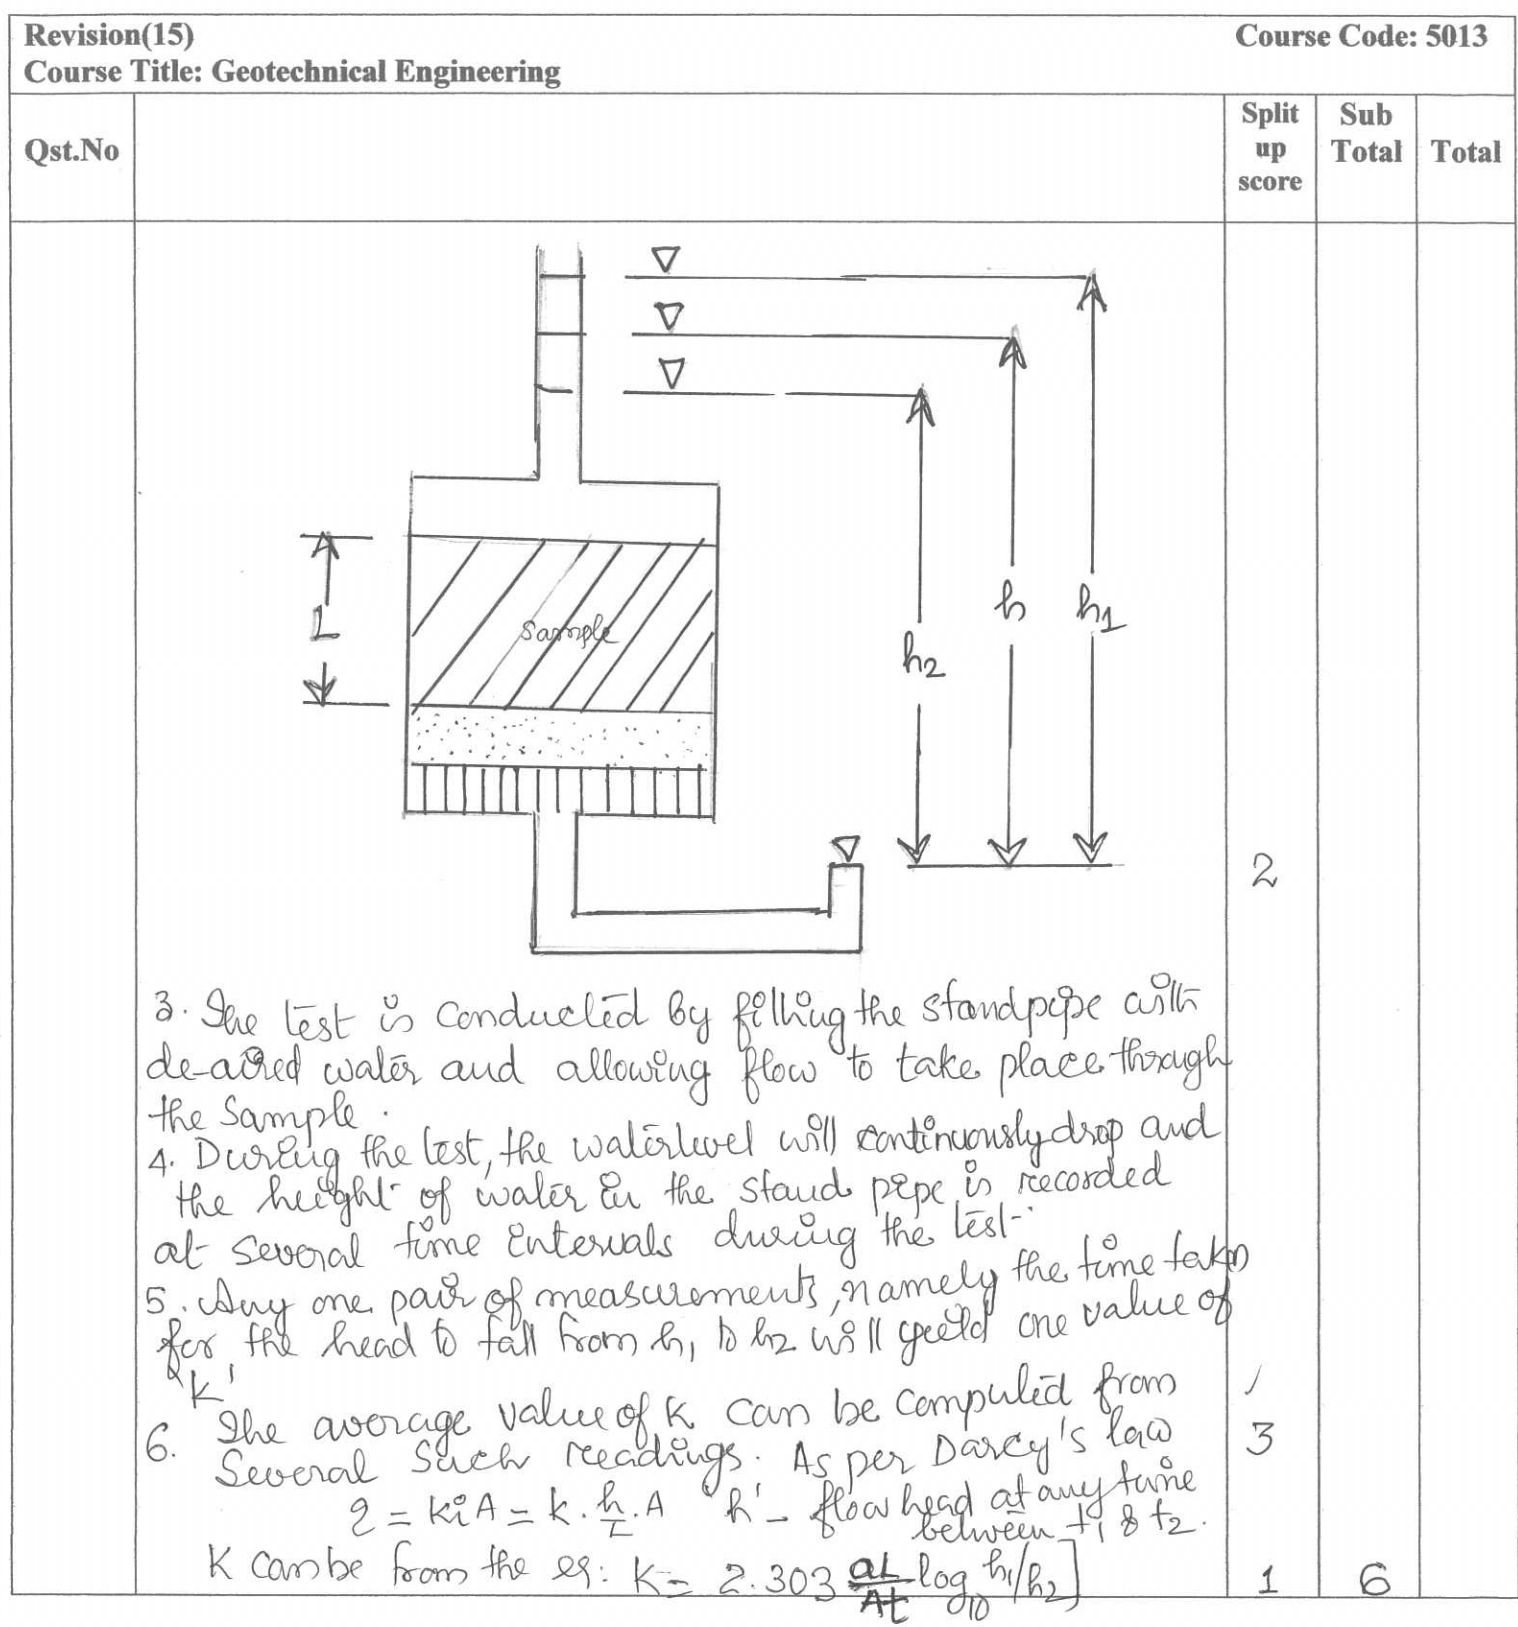 Revision(15) Course Code: 5013
Course Title: Geotechnical Engineering
Qst.No
Split up score
Sub Total
Total
h1
h
h2
L
Sample
2
3. The test is conducted by filling the standpipe with
de-aired water and allowing flow to take place through
the Sample.
4. During the test, the waterlevel will continuously drop and
the height of water in the stand pipe is recorded
at several time intervals during the test.
5. Any one pair of measurements, namely the time taken
for the head to fall from h1 to h2 will yield one value of
'k'
6. The average value of k can be computed from
Several such readings. As per Darcy's law
3
q = kiA = k. h/L .A 'h' - flow head at any time
between t1 & t2.
K can be from the eq: K = 2.303 aL/At log10 h1/h2]
1 6